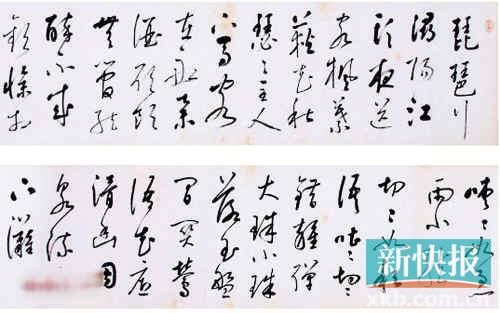 琵琶行
潯陽江
頭夜送
客楓葉
荻花秋
瑟〻主人
下馬客
在船舉
酒欲飲
無管絃
醉不成
歡慘將
嘈〻如急
雨小弦
切〻如私
語嘈〻切〻
錯雜彈
大珠小珠
落玉盤
間關鶯
語花底
滑幽咽
泉流
下灘
新快报
xkb.com.cn